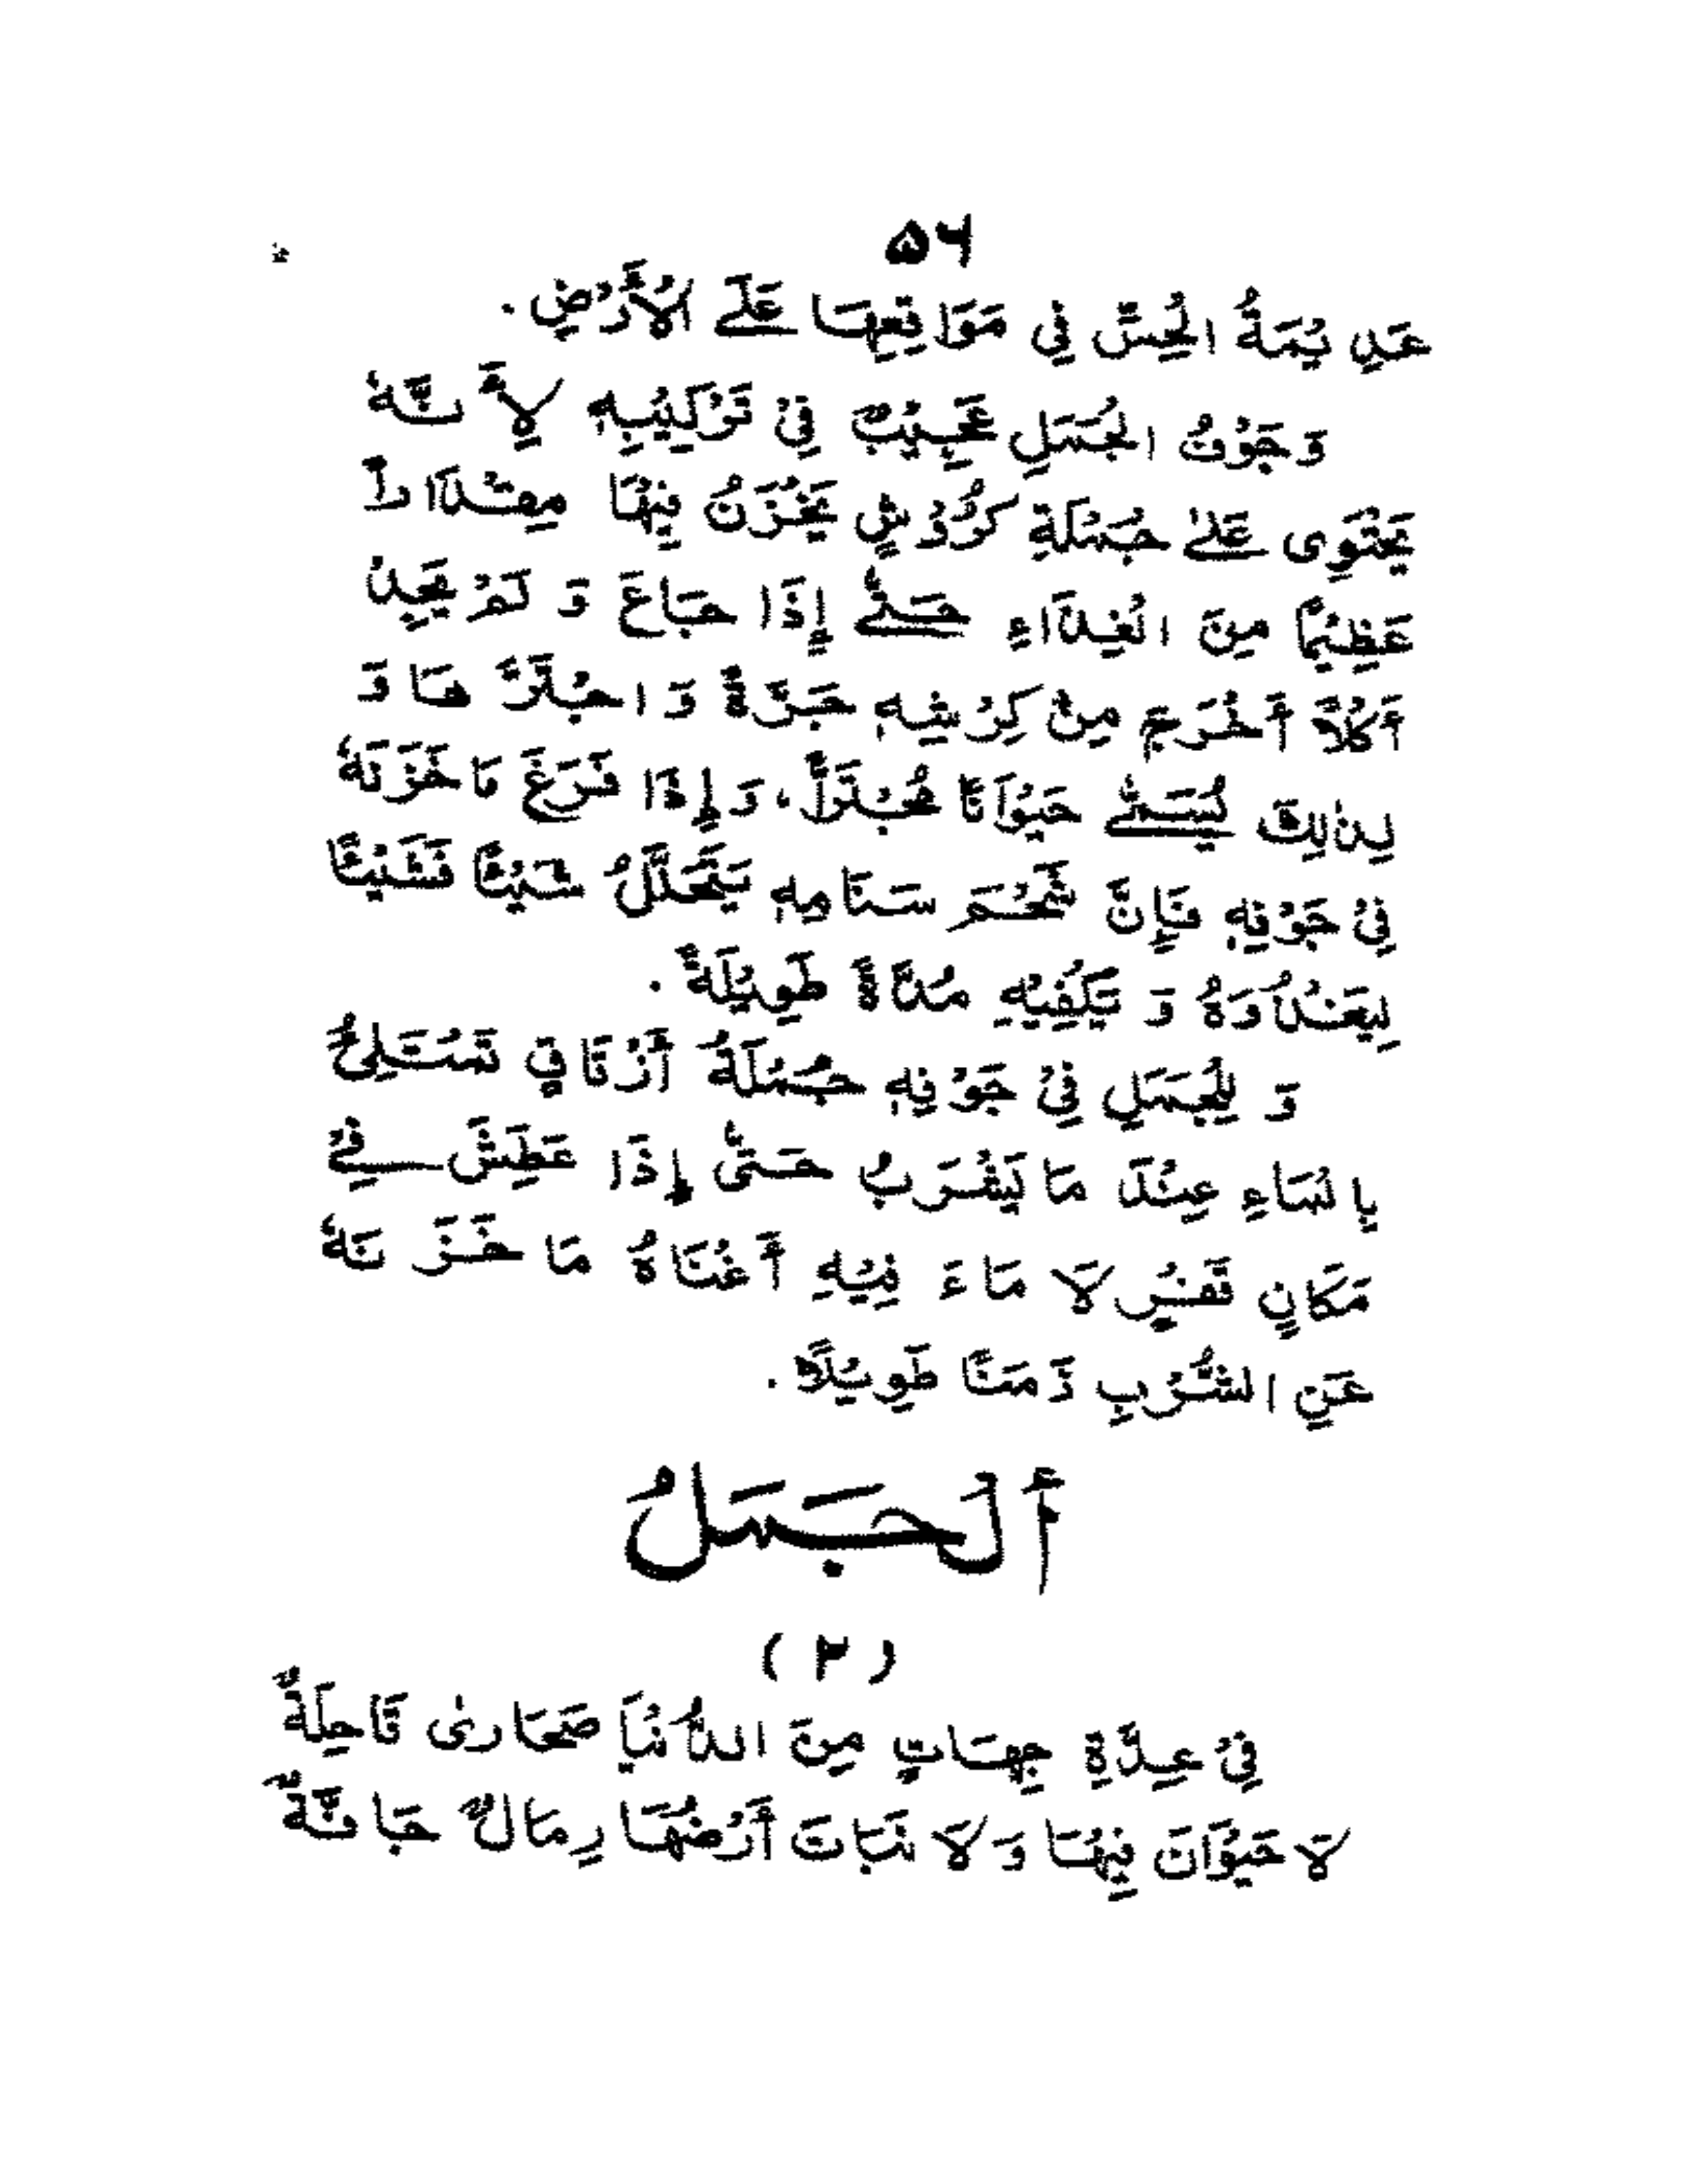 ۵۶
عَدِيْمَةُ الْحِسِّ فِي مَوَاقِعِهَا عَلَى الْأَرْضِ.
وَجَوْفُ الْجَمَلِ عَجِيْبٌ فِيْ تَرْكِيْبِهِ لِأَنَّهُ
يَحْتَوِى عَلىٰ جُمْلَةِ كُرُوْشٍ يَخْزَنُ فِيْهَا مِقْدَاراً
عَظِيْمًا مِنَ الْغِذَاءِ حَتّٰى إِذَا جَاعَ وَ لَمْ يَجِدْ
أَكْلاً أَخْرَجَ مِنْ كِرْشِهِ جَرَّةً وَ اجْتَرَّهَا وَ
لِذٰلِكَ يُسَمّٰى حَيْوَانًا مُجْتَرّاً، وَ إِذَا فَرَغَ مَا خَزَنَهُ
فِيْ جَوْفِهِ فَإِنَّ شَحْمَ سَنَامِهِ يَتَحَلَّلُ شَيْئًا فَشَيْئًا
لِيَغْذُوَهُ وَ يَكْفِيْهِ مُدَّةً طَوِيْلَةً.
وَ لِلْجَمَلِ فِيْ جَوْفِهِ جُمْلَةُ أَزْقَاقٍ تَمْتَلِئُ
بِالْمَاءِ عِنْدَ مَا يَشْرَبُ حَتّٰى إِذَا عَطِشَ فِيْ
مَكَانٍ قَفْرٍ لَا مَاءَ فِيْهِ أَغْنَاهُ مَا خَزَنَهُ
عَنِ الشُّرْبِ زَمَنًا طَوِيْلاً.
أَلْجَمَلُ
(۲)
فِيْ عِدَّةِ جِهَاتٍ مِنَ الدُّنْيَا صَحَارىٰ قَاحِلَةٌ
لَا حَيْوَانَ فِيْهَا وَلَا نَبَاتَ أَرْضُهَا رِمَالٌ جَافَّةٌ